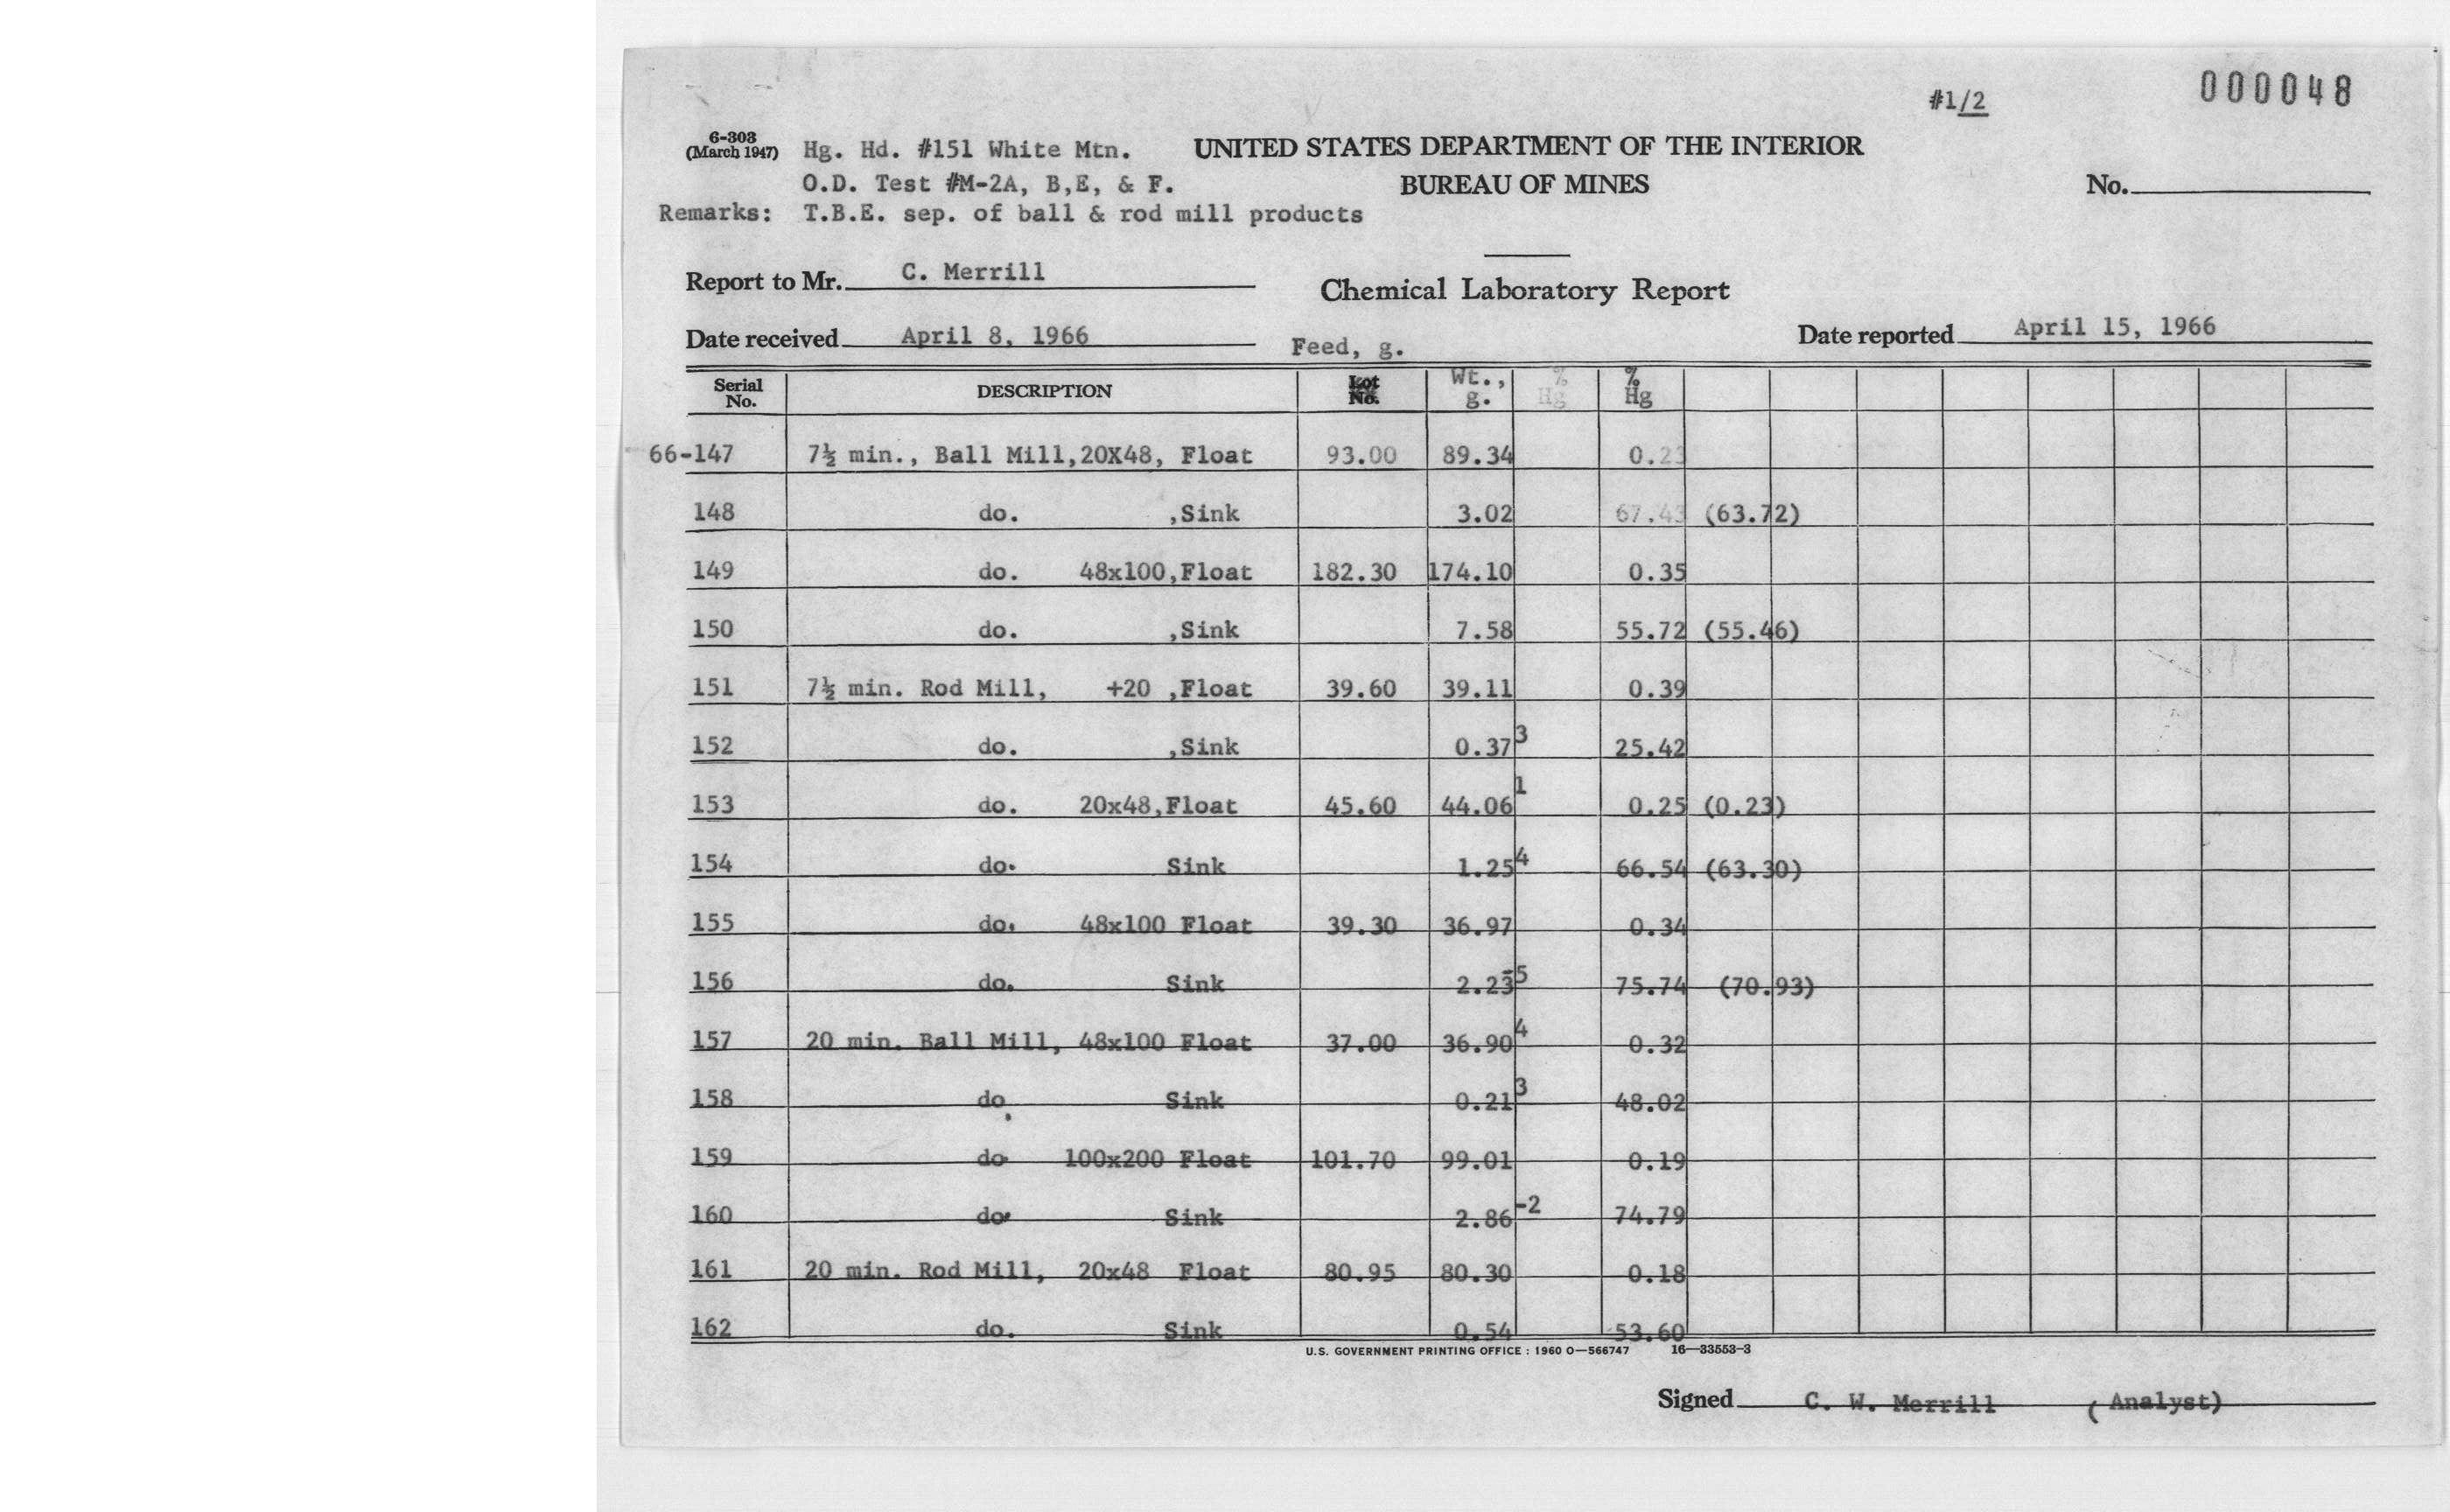 #1/2 000048
6-303
(March 1947) Hg. Hd. #151 White Mtn. UNITED STATES DEPARTMENT OF THE INTERIOR
O.D. Test #M-2A, B,E, & F. BUREAU OF MINES No.
Remarks: T.B.E. sep. of ball & rod mill products
Report to Mr. C. Merrill
Chemical Laboratory Report
Date received April 8, 1966 Feed, g. Date reported April 15, 1966
Serial No. DESCRIPTION Lot No. Wt., g. % Hg % Hg
66-147 7½ min., Ball Mill,20X48, Float 93.00 89.34 0.23
148 do. ,Sink 3.02 67.43 (63.72)
149 do. 48x100,Float 182.30 174.10 0.35
150 do. ,Sink 7.58 55.72 (55.46)
151 7½ min. Rod Mill, +20 ,Float 39.60 39.11 0.39
152 do. ,Sink 0.373 25.42
153 do. 20x48,Float 45.60 44.061 0.25 (0.23)
154 do. Sink 1.254 66.54 (63.30)
155 do. 48x100 Float 39.30 36.97 0.34
156 do. Sink 2.23-5 75.74 (70.93)
157 20 min. Ball Mill, 48x100 Float 37.00 36.904 0.32
158 do. Sink 0.213 48.02
159 do 100x200 Float 101.70 99.01 0.19
160 do. Sink 2.86-2 74.79
161 20 min. Rod Mill, 20x48 Float 80.95 80.30 0.18
162 do. Sink 0.54 53.60
U.S. GOVERNMENT PRINTING OFFICE : 1960 O—566747 16—33553-3
Signed C. W. Merrill (Analyst)